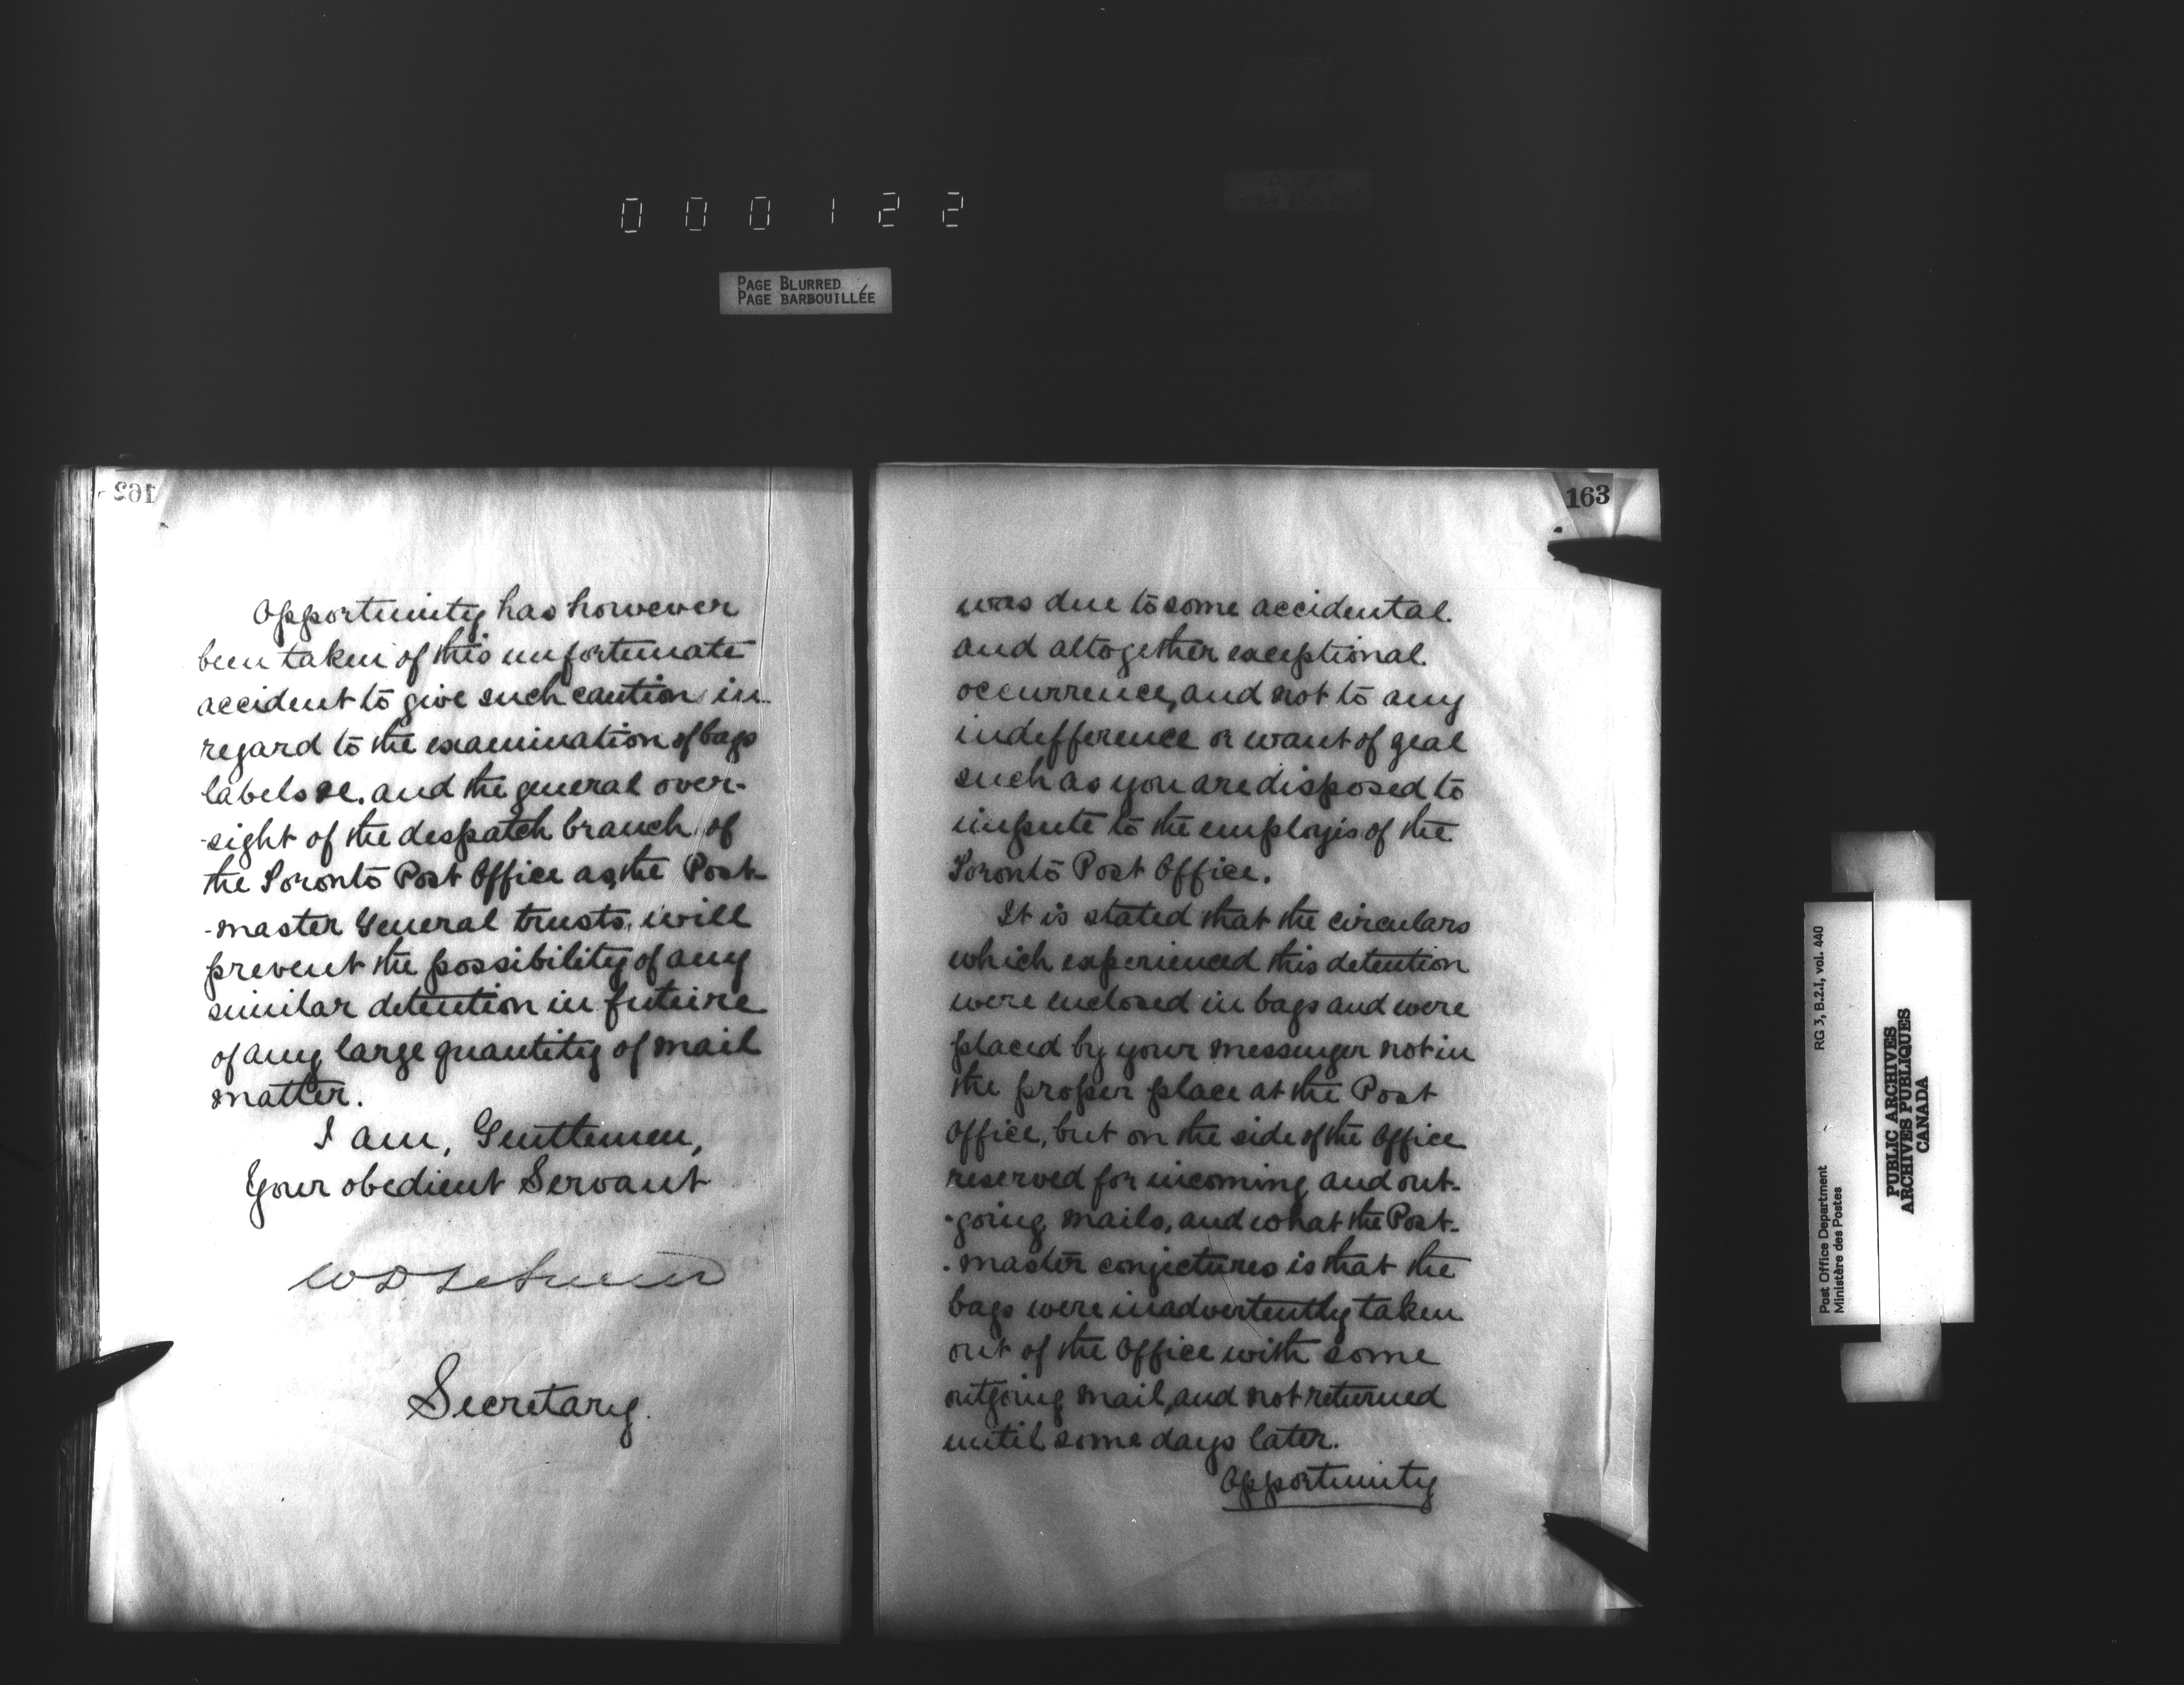 000122
PAGE BLURRED
PAGE BARBOUILLÉE
162
Opportunity has however
been taken of this unfortunate
accident to give such caution in
regard to the examination of bags
labels &c. and the general over-
-sight of the despatch branch of
the Toronto Post Office as, the Post-
-master General trusts, will
prevent the possibility of any
similar detention in future
of any large quantity of mail
matter.
I am, Gentlemen,
Your obedient Servant
W D LeSueur
Secretary.
163
was due to some accidental
and altogether exceptional
occurrence, and not to any
indefference or want of zeal
such as you are disposed to
impute to the employis of the
Toronto Post Office.
It is stated that the circulars
which experienced this detention
were enclosed in bags and were
placed by your messenger not in
the proper place at the Post
Office, but on the side of the Office
reserved for incoming and out-
-going mails, and what the Post-
-master conjectures is that the
bags were inadvertently taken
out of the Office with some
outgoing mail, and not returned
until some days later.
Opportunity
Post Office Department
Ministère des Postes
RG 3, B.2.I, vol. 440
PUBLIC ARCHIVES
ARCHIVES PUBLIQUES
CANADA